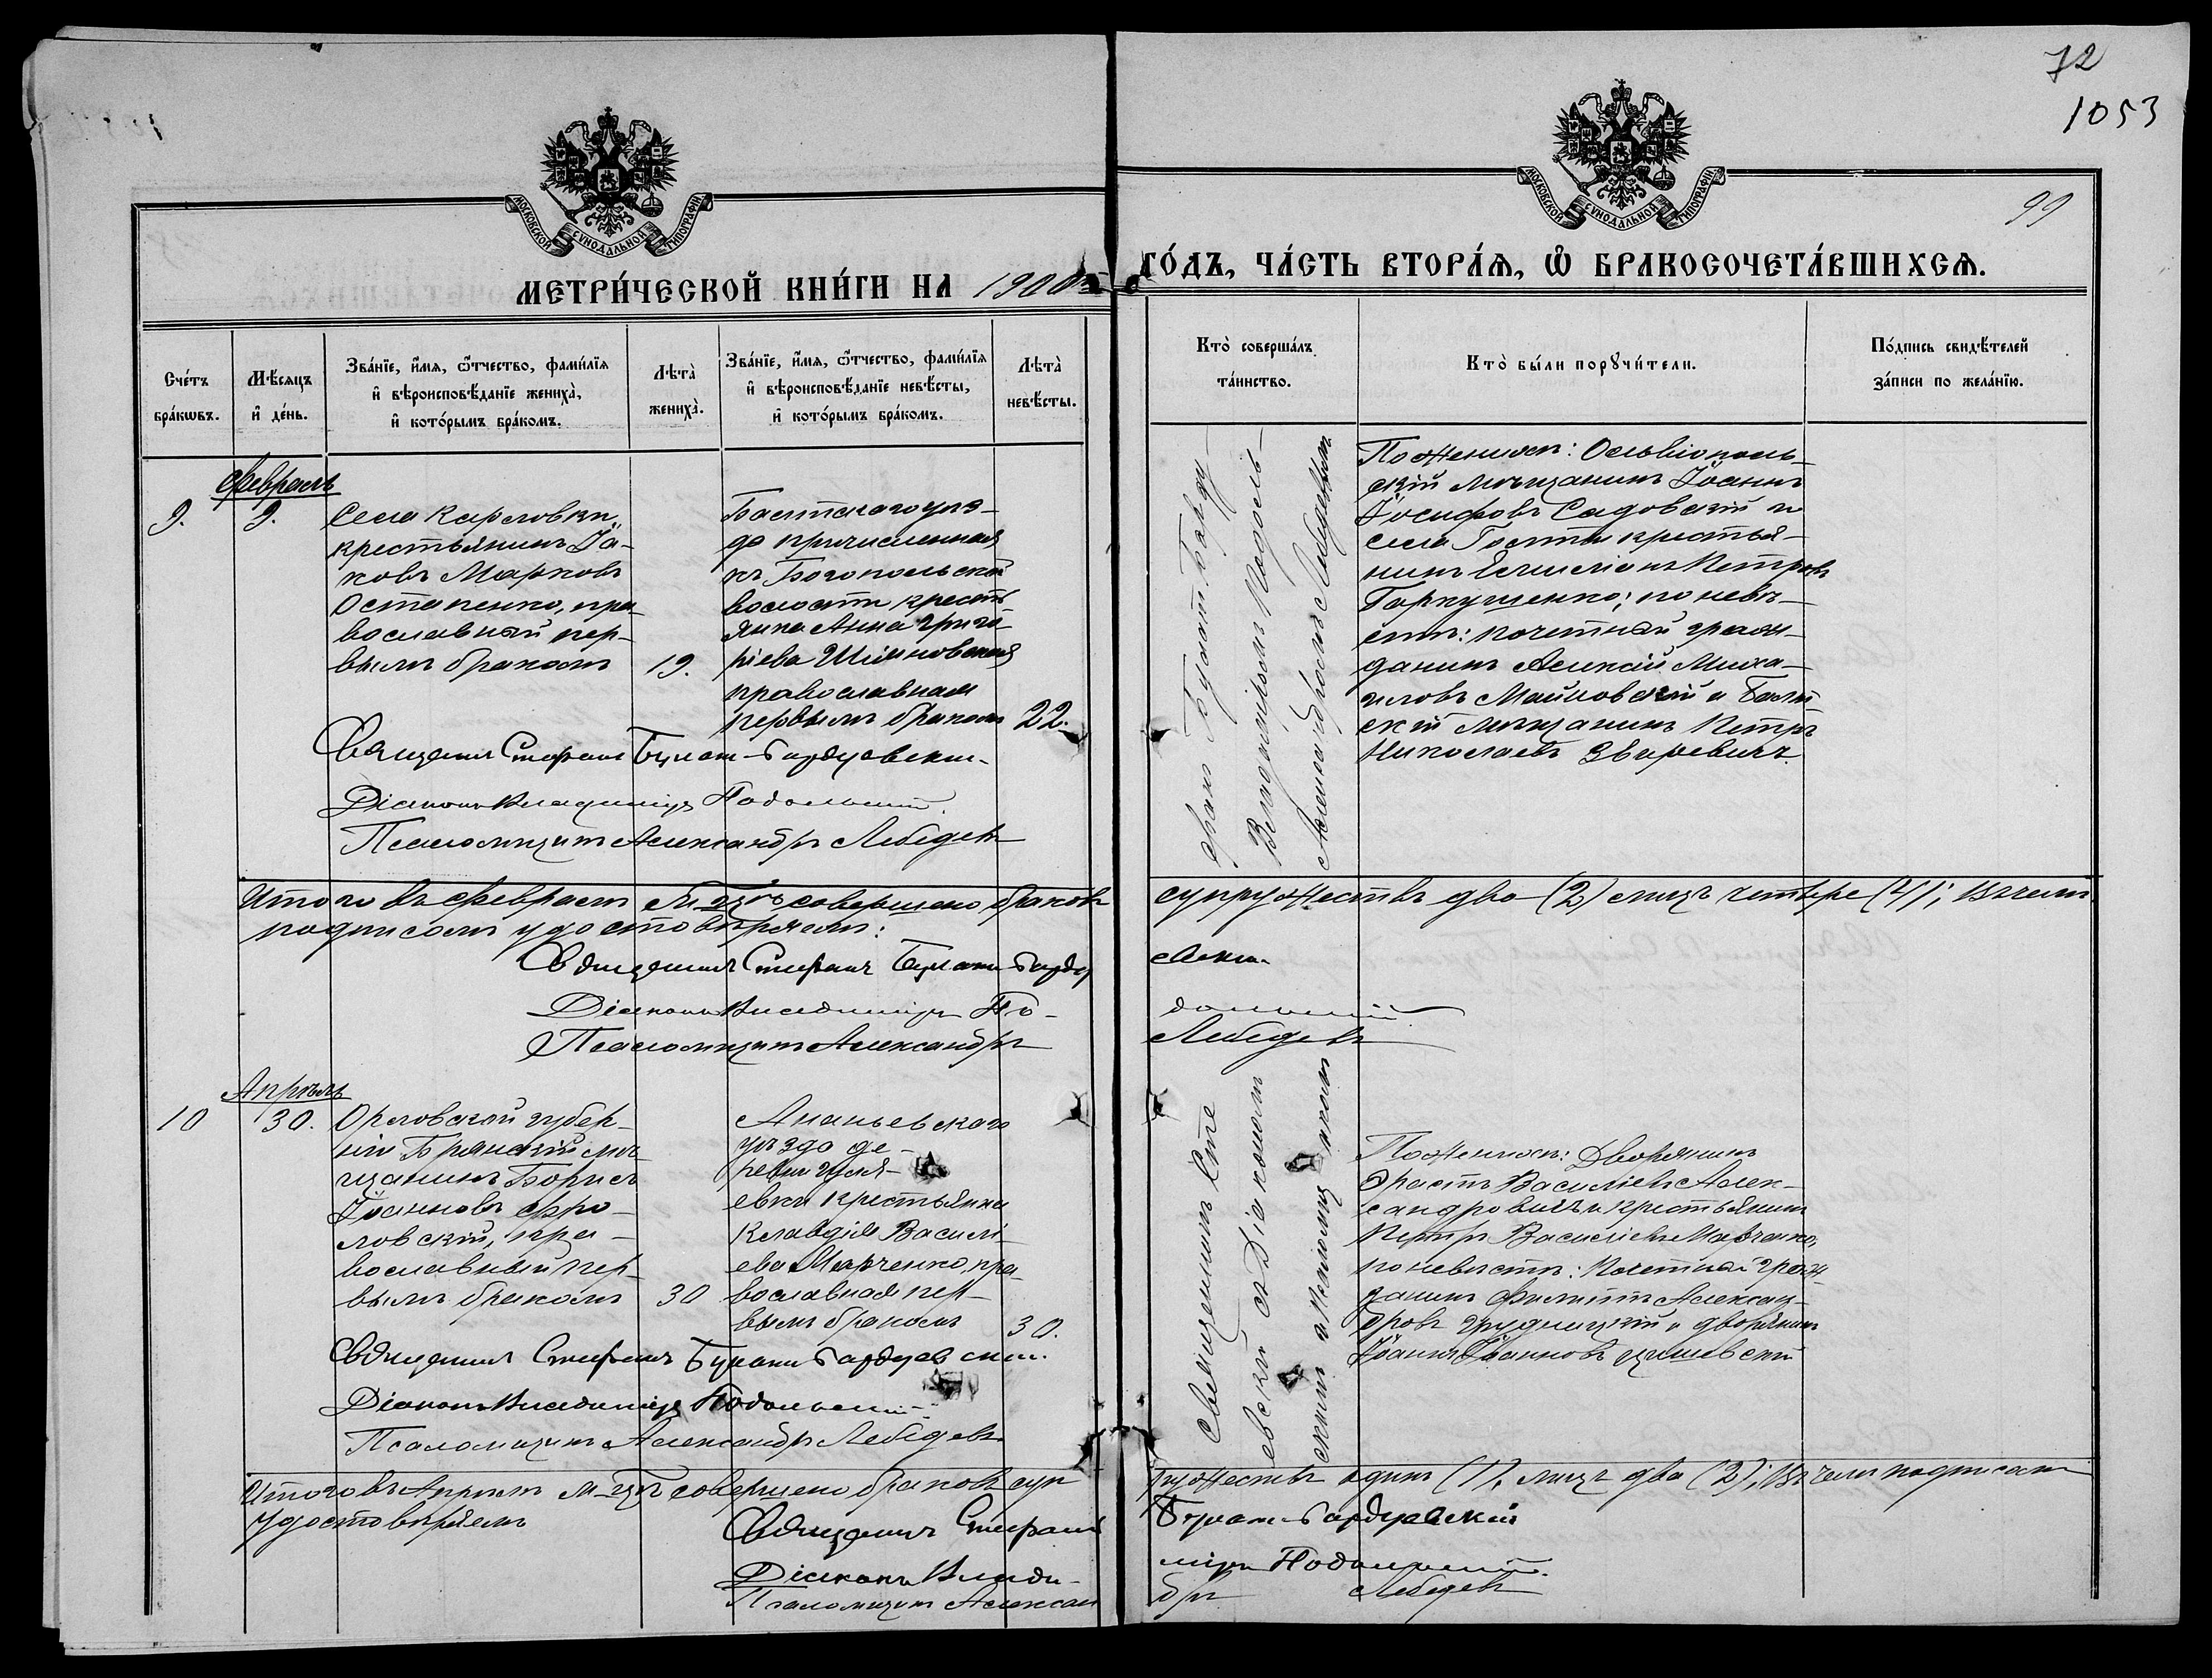 72
1053
99
МОСКОВСКОЙ СѴНОДАЛЬНОЙ ТИПОГРАФІИ
МОСКОВСКОЙ СѴНОДАЛЬНОЙ ТИПОГРАФІИ
МЕТРИ́ЧЕСКОЙ КНИ́ГИ НА 1900
ГО́ДЪ, ЧА́СТЬ ВТОРА́Ѧ, Ѽ БРАКОСОЧЕТА́ВШИХСѦ.
Сче́тъ
бра́кωвъ.
Мѣ́сѧцъ
и҆ де́нь.
Зва́нїе, и҆́мѧ, ѻ҆́тчество, фами́лїѧ
и҆ вѣроисповѣ́данїе жениха̀,
и҆ кото́рымъ бра́комъ.
Лѣ́та̀
жениха̀.
Зва́нїе, и҆́мѧ, ѻ҆́тчество, фами́лїѧ
и҆ вѣроисповѣ́данїе невѣ́сты,
и҆ кото́рымъ бра́комъ.
Лѣ́та̀
невѣ́сты.
Кто̀ соверша́лъ
та́инство.
Кто̀ бы́ли порꙋчи́тели.
По́дпись свидѣ́телей
за́писи по жела́нїю.
Февраль
9.
9.
Села Карловки
крестьянинъ Іа-
ковъ Марковъ
Остапенко, пра-
вославный пер-
вымъ бракомъ
19.
Балтскаго уѣз-
да причисленная
къ Богопольской
волости кресть
янка Анна Григо-
ріева Шимновская
православная
первымъ бракомъ
22.
фаномъ Булат-Барду-
Владиміромъ Подоль-
Александромъ Лебедевымъ
По женихѣ: Ольвіополь-
скій мѣщанинъ Іоаннъ
Іосифовъ Садовскій и
села Голты крестья-
нинъ Емиліанъ Петровъ
Гаркушенко; по невѣ-
стѣ: почетный граж-
данинъ Алексій Миха-
иловъ Майковскій и Балт-
скій мѣщанинъ Петръ
Николаевъ Зваревичъ
Священникъ Стефанъ Булат-Бардуевскій.
Діаконъ Владиміръ Подольскій
Псаломщикъ Александръ Лебедевъ
Итого въ Февралѣ м-цѣ совершено браковъ
супружествъ два (2) лицъ четыре (4); въ чемъ
подписомъ удостовѣряемъ:
Священникъ Стефанъ Булат-Барду
евскій.
Діаконъ Владиміръ По-
дольскій
Псаломщикъ Александръ
Лебедевъ
Апрѣль
10
30.
Орловской губер-
ніи Брянскій мѣ-
щанинъ Борисъ
Іоанновъ Фро-
ловскій, пра-
вославный пер-
вымъ бракомъ
30
Ананьевскаго
уѣзда де-
ревни
евки крестьянка
Клавдія Василі-
ева Марченко, пра-
вославная пер-
вымъ бракомъ
30.
Священникомъ Сте
евскій съ Діакономъ
скимъ и Псаломщикомъ
По женихѣ: Дворянинъ
Эрастъ Василіевъ Алек-
сандровичъ и крестьянинъ
Петръ Василіевъ Марченко,
по невѣстѣ: Почетный граж
данинъ Филиппъ Алексан-
дровъ Грудницкій и дворянинъ
Іоаннъ Іоанновъ
Священникъ Стефанъ Булат-Бардуевскій.
Діаконъ Владиміръ Подольскій
Псаломщикъ Александръ Лебедевъ
Итого въ Апрѣлѣ м-цѣ совершено браковъ суп
ружествъ одинъ (1), лицъ два (2); въ чемъ подписомъ
удостовѣряемъ
Священникъ Стефанъ
Булат-Бардуевскій
Діаконъ Влади-
міръ Подольскій.
Псаломщикъ Александръ Лебедевъ